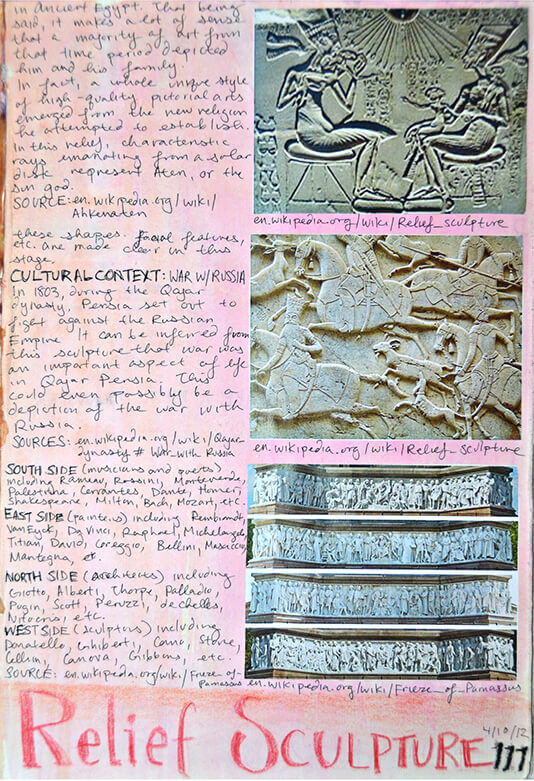 in Ancient Egypt. That being
said, it makes a lot of sense
that a majority of art from
that time period depicted
him and his family.
In fact, a whole unique style
of high-quality pictorial arts
emerged from the new religion
he attempted to establish.
In this relief, characteristic
rays emanating from a solar
disk represent Aten, or the
sun god.
SOURCE: en.wikipedia.org/wiki/
Ahkenaten
en.wikipedia.org/wiki/Relief_sculpture
these shapes. Facial features,
etc. are made clear in this
stage.
CULTURAL CONTEXT: WAR W/RUSSIA
In 1803, during the Qajar
dynasty, Persia set out to
fight against the Russian
Empire. It can be inferred from
this sculpture that war was
an important aspect of life
in Qajar Persia. This
could even possibly be a
depiction of the war with
Russia.
SOURCES: en.wikipedia.org/wiki/Qajar-
dynasty # War-with Russia
en.wikipedia.org/wiki/Relief_sculpture
SOUTH SIDE (musicians and poets)
including Rameau, Rossini, Monteverde,
Palestrina, Cervantes, Dante, Homer,
Shakespeare, Milton, Bach, Mozart, etc
EAST SIDE (painters) including Rembrandt,
VanEyck, Da Vinci, Raphael, Michelangelo
Titian, David, Coreggio, Bellini, Masaccio
Mantegna, et.
NORTH SIDE (architects) including
Giotto, Alberti, Thorpe, Palladio,
Pugin, Scott, Peruzzi, dechelles,
Nitocris, etc.
WEST SIDE (sculptors) including
Donatello, Ghiberti, Cano, Stone,
Cellini, Canova, Gibbons, etc.
SOURCE: en.wikipedia.org/wiki/Frieze_of-
Parnassus
en.wikipedia.org/wiki/Frieze_of_Parnassus
4/10/12
Relief SCULPTURE